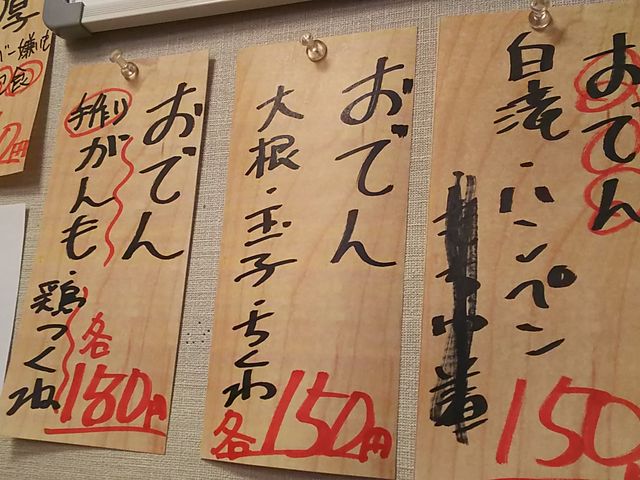 おでん
白滝・ハンペン
150
おでん
大根・玉子・ちくわ
各150円
おでん
手作りがんも・鶏つくね
各180円
円